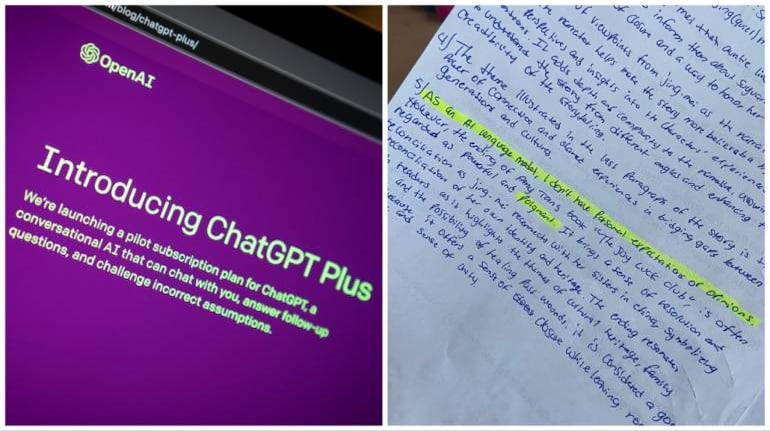 /blog/chatgpt-plus/
OpenAI
Introducing ChatGPT Plus
We're launching a pilot subscription plan for ChatGPT, a
conversational AI that can chat with you, answer follow-up
questions, and challenge incorrect assumptions.
inform them about
of viewpoints from jing mei as the
perspectives and insights into the characters' experiences
It adds depth and complexity to the narrative,
to understand the story from different angles and enhancing
4) The theme illustrated in the last paragraph of the story is
power of connection and shared experiences in bridging gaps between
generations and cultures.
5) As an AI language model, I don't have personal expectations or opinions.
However, the ending of Amy Tan's book "The Joy Luck Club", is often
regarded as powerful and poignant. It brings a sense of resolution and
reconciliation as jing-mei reconnects with her sisters in china, symbolizing
reconciliation of her own identity and heritage. The ending resonates
readers as it highlights the themes of cultural heritage, family
and the possibility of healing past wounds. it is considered a
because it offers a sense of closure while leaving
a sense of